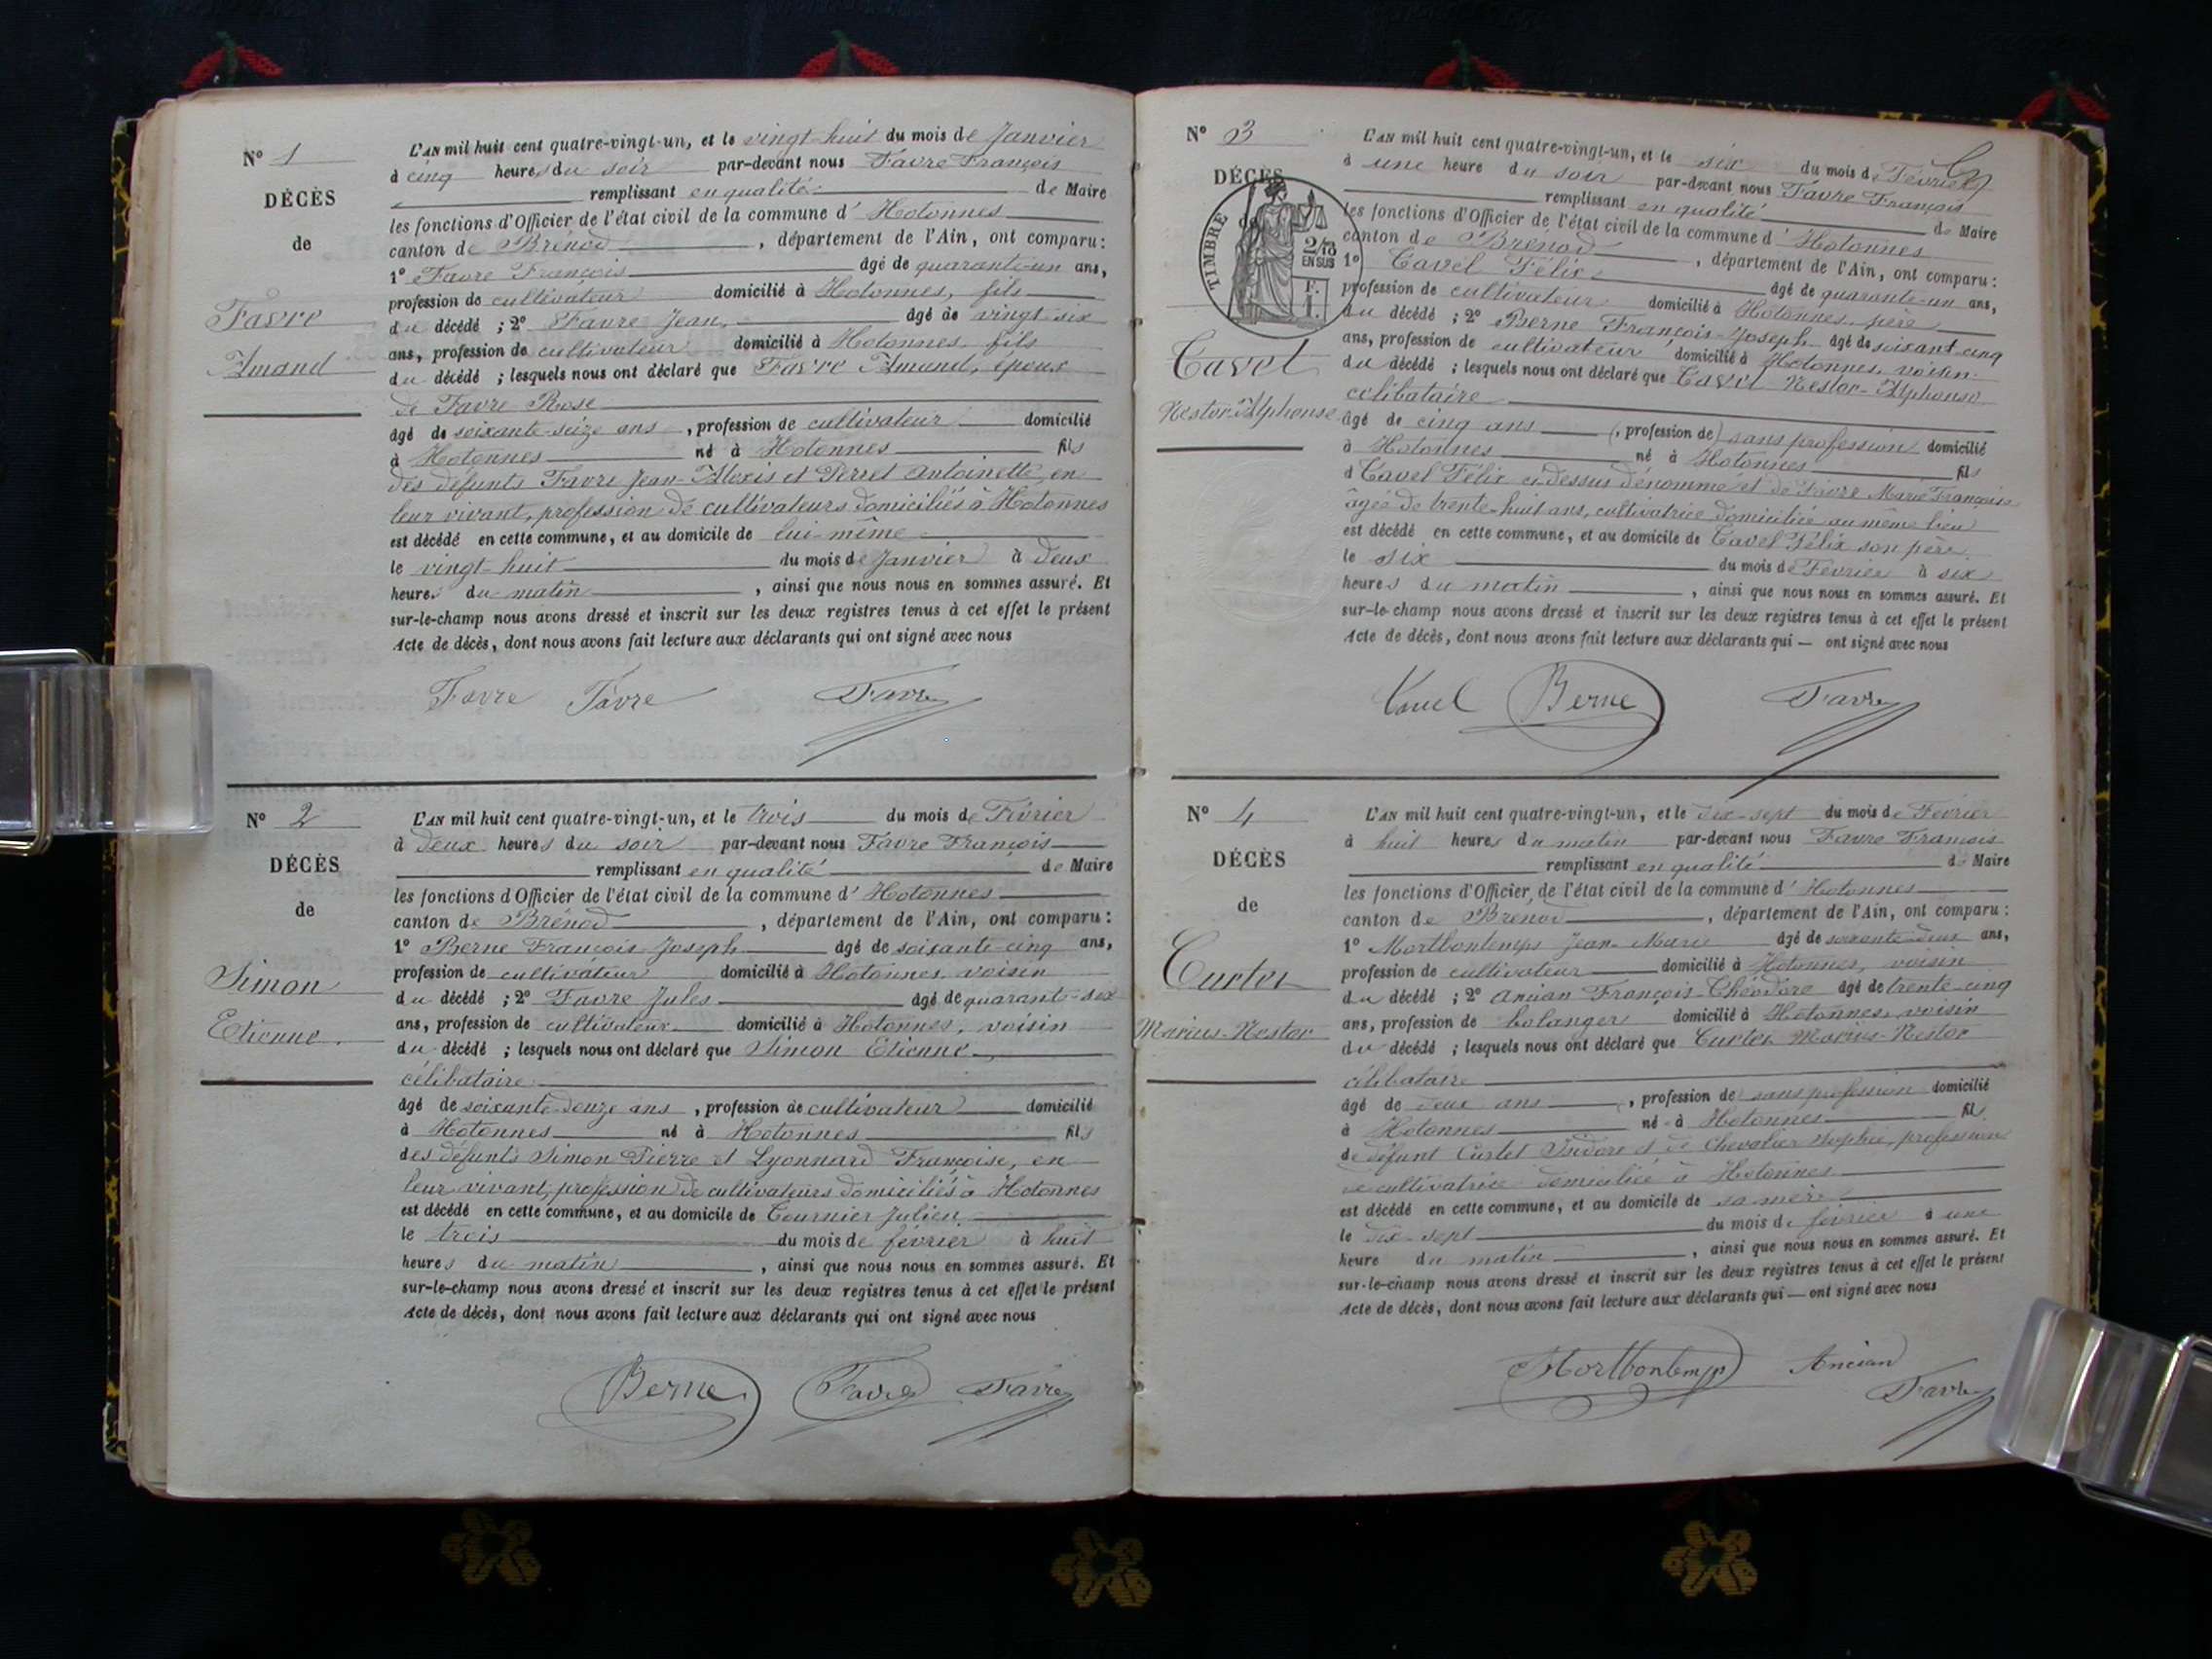 N° 1
DÉCÈS
de
Favre
Amand
L'AN mil huit cent quatre-vingt-un, et le vingt-huit du mois de Janvier
à cinq heures du soir par-devant nous Favre François
remplissant en qualité de Maire
les fonctions d'Officier de l'état civil de la commune d'Hotonnes
canton de Brénod, département de l'Ain, ont comparu:
1° Favre François âgé de quarante-un ans,
profession de cultivateur domicilié à Hotonnes, fils
du décédé ; 2° Favre Jean, âgé de vingt-six
ans, profession de cultivateur domicilié à Hotonnes, fils
du décédé ; lesquels nous ont déclaré que Favre Amand, époux
de Favre Rose
âgé de soixante-seize ans, profession de cultivateur domicilié
à Hotonnes né à Hotonnes fils
des défunts Favre Jean-Alexis et Perret Antoinette, en
leur vivant, profession de cultivateurs domiciliés à Hotonnes
est décédé en cette commune, et au domicile de lui-même
le vingt-huit du mois de Janvier à deux
heures du matin, ainsi que nous nous en sommes assuré. Et
sur-le-champ nous avons dressé et inscrit sur les deux registres tenus à cet effet le présent
Acte de décès, dont nous avons fait lecture aux déclarants qui ont signé avec nous
Favre Favre Favre
N° 2
DÉCÈS
de
Simon
Etienne.
L'AN mil huit cent quatre-vingt-un, et le trois du mois de Février
à deux heures du soir par-devant nous Favre François
remplissant en qualité de Maire
les fonctions d'Officier de l'état civil de la commune d'Hotonnes
canton de Brénod, département de l'Ain, ont comparu :
1° Berne François-Joseph âgé de soixante-cinq ans,
profession de cultivateur domicilié à Hotonnes, voisin
du décédé ; 2° Favre Jules âgé de quarante-six
ans, profession de cultivateur domicilié à Hotonnes, voisin
du décédé ; lesquels nous ont déclaré que Simon Etienne
célibataire
âgé de soixante-douze ans, profession de cultivateur domicilié
à Hotonnes né à Hotonnes fils
des défunts Simon Pierre et Lyonnard Françoise, en
leur vivant, profession de cultivateurs domiciliés à Hotonnes
est décédé en cette commune, et au domicile de Tournier Julien,
le trois du mois de février à huit
heures du matin, ainsi que nous nous en sommes assuré. Et
sur-le-champ nous avons dressé et inscrit sur les deux registres tenus à cet effet le présent
Acte de décès, dont nous avons fait lecture aux déclarants qui ont signé avec nous
Berne Favre Favre
N° 3
DÉCÈS
de
TIMBRE
2/10
EN SUS
F.
1.
Cavel
Nestor-Alphonse
L'AN mil huit cent quatre-vingt-un, et le six du mois de Février
à une heure du soir par-devant nous Favre François
remplissant en qualité de Maire
les fonctions d'Officier de l'état civil de la commune d'Hotonnes
canton de Brénod, département de l'Ain, ont comparu :
1° Cavel Félix âgé de quarante-un ans,
profession de cultivateur domicilié à Hotonnes, père
du décédé ; 2° Berne François-Joseph âgé de soixant cinq
ans, profession de cultivateur domicilié à Hotonnes, voisin
du décédé ; lesquels nous ont déclaré que Cavel Nestor-Alphonse
célibataire
âgé de cinq ans (, profession de) sans profession domicilié
à Hotonnes né à Hotonnes fils
d Cavel Félix ci-dessus dénommé et de Favre Marie Françoise
âgée de trente-huit ans, cultivatrice domiciliée au même lieu
est décédé en cette commune, et au domicile de Cavel Félix son père,
le six du mois de Février à six
heures du matin, ainsi que nous nous en sommes assuré. Et
sur-le-champ nous avons dressé et inscrit sur les deux registres tenus à cet effet le présent
Acte de décès, dont nous avons fait lecture aux déclarants qui — ont signé avec nous
Cavel Berne Favre
N° 4
DÉCÈS
de
Curtet
Marius-Nestor
L'AN mil huit cent quatre-vingt-un, et le dix-sept du mois de Février
à huit heures du matin par-devant nous Favre François
remplissant en qualité de Maire
les fonctions d'Officier de l'état civil de la commune d'Hotonnes
canton de Brénod, département de l'Ain, ont comparu :
1° Mortbontemps Jean-Marie âgé de soixante-deux ans,
profession de cultivateur domicilié à Hotonnes, voisin
du décédé ; 2° Ancian François-Théodore âgé de trente-cinq
ans, profession de bolanger domicilié à Hotonnes, voisin
du décédé ; lesquels nous ont déclaré que Curtet Marius-Nestor
célibataire
âgé de deux ans, profession de sans profession domicilié
à Hotonnes né à Hotonnes fils
de défunt Curtet Isidore et de Chevalier Sophie, profession
de cultivatrice domiciliée à Hotonnes
est décédé en cette commune, et au domicile de sa mère
le dix-sept du mois de février à une
heure du matin, ainsi que nous nous en sommes assuré. Et
sur-le-champ nous avons dressé et inscrit sur les deux registres tenus à cet effet le présent
Acte de décès, dont nous avons fait lecture aux déclarants qui — ont signé avec nous
Mortbontemps Ancian
Favre